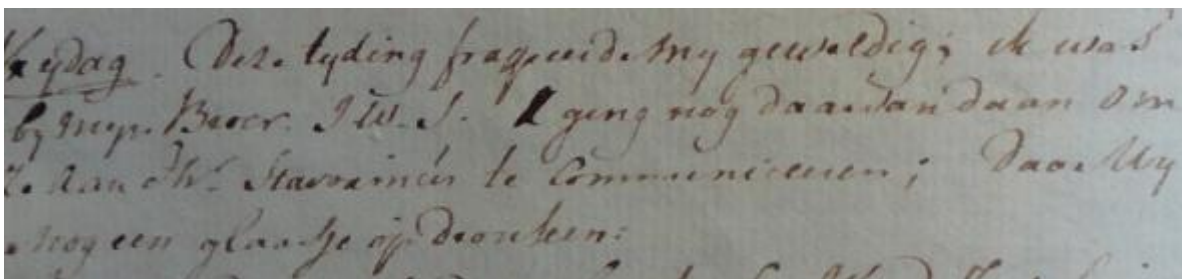 Vrydag. Deze tyding frappeerde my geweldig; ik was
by myn Broer. I.W.S. & ging nog daar van daan om
ze aan Mr. Stavorinus te Communiceeren; daar Wy
nog een glaasje op dronken: